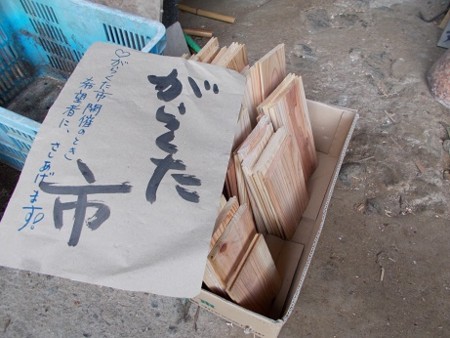 がらくた
市
♡がらくた市開催のとき
希望者に、さしあげます。